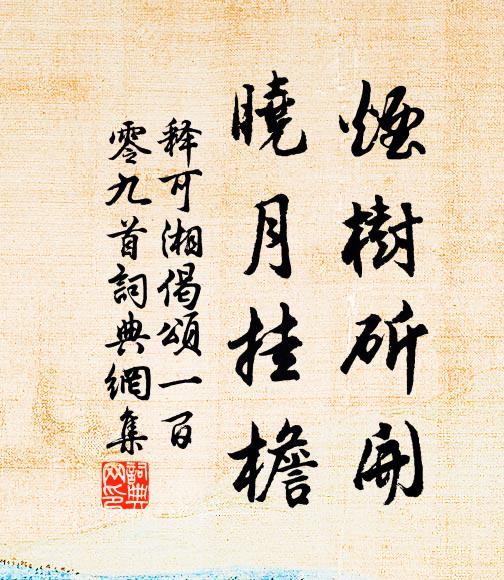 煙樹斫開
曉月挂檐
釋可湘偈頌一百
零九首詞典網集
詞典
网印